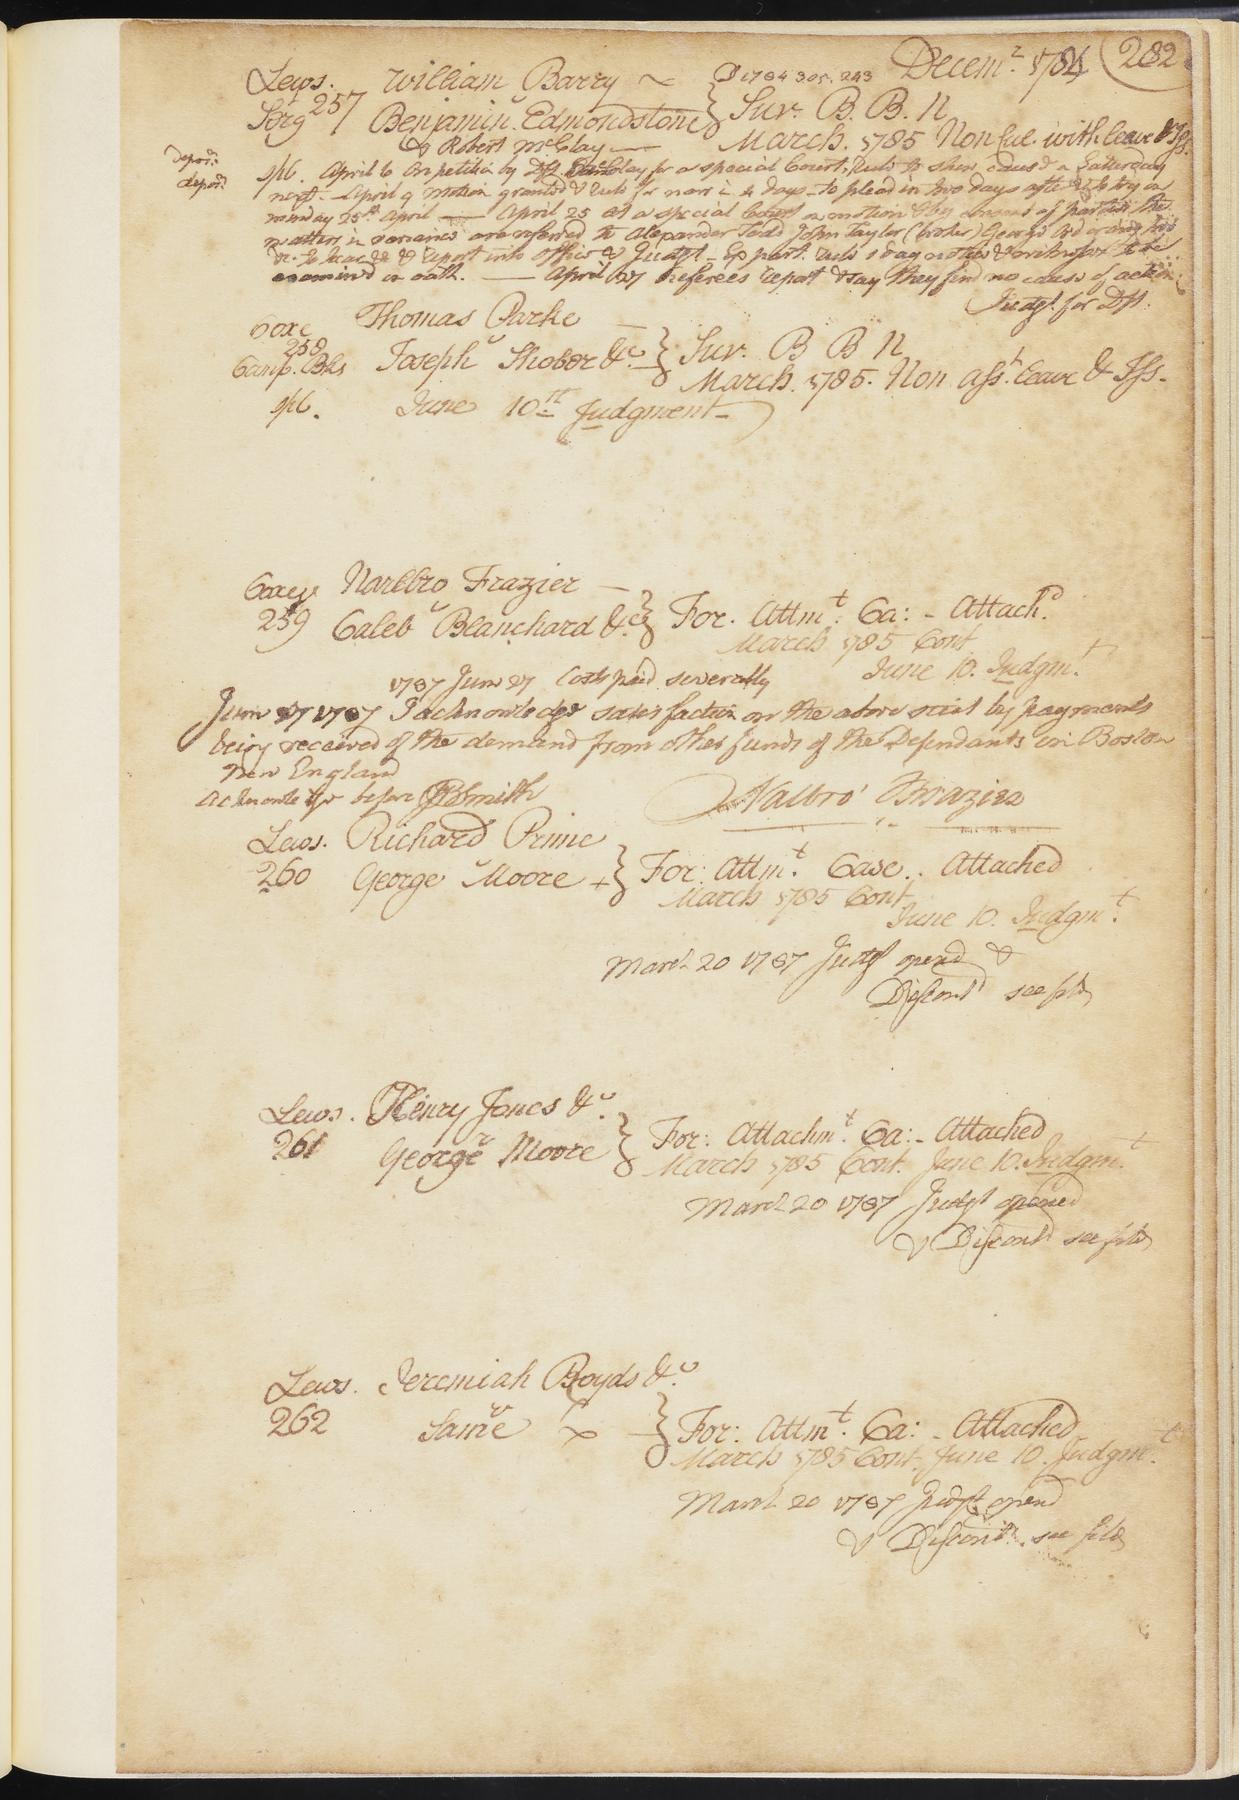 Decemr. 1784 282
Lews. William Barry D 1784 305. 243
Serg 257 Benjamin Edmondstone } Sur. B. B. N
& Robert McClay — March. 1785 Non cul. with leave & Iss.
depodt.
depodt.
April 6 On petition by Dft. McClay for a special Court, Rule to shew cause on Saturday
next — April 9 motion granted & Rule for narr in 4 days — to plead in two days after & to try on
monday 25th April — April 25 at a special Court on motion & by consent of parties the
matters in variance are referred to Alexander Todd John Taylor (broker) George Ord or any two
&c. to hear &c & report into office & Judgt — Ex part. Rule 1 day notice & witnesses to be
examined on oath. — April 27 Referees report & say they find no cause of action
Judgt. for Dft.
Coxe Thomas Parke —
258
Camp. Bks Joseph Shober &c. } Sur. B B N
March. 1785. Non asst. leave & Iss.
June 10th Judgment
Coxe Nalbro Frazier —
259 Caleb Blanchard &c. } For. Attmt. Ca: - Attachd.
March 1785 Cont
June 10. Judgmt.
1787 June 27 Costs paid severally
June 27 1787 I acknowledge satisfaction on the above suit by payments
being received of the demand from other funds of the Defendants in Boston
New England
Acknowledgd before JBSmith Nalbro' Frazier
Lews. Richard Prime
260 George Moore + } For: Attmt. Case. Attached
March 1785 Cont.
June 10. Judgmt.
March 20 1787 Judgt opend &
Discontd see file
Lews. Henry Jones &c.
261 George Moore } For: Attachmt. Ca: - Attached
March 1785 Cont. June 10. Judgmt.
March 20 1787 Judgt opened
& Discontd see file
Lews. Jeremiah Boyds &c.
262 Same } For: Attmt. Ca: - Attached
March 1785 Cont. June 10. Judgmt.
March 20 1787 Judgt opend
& Discontd. see file